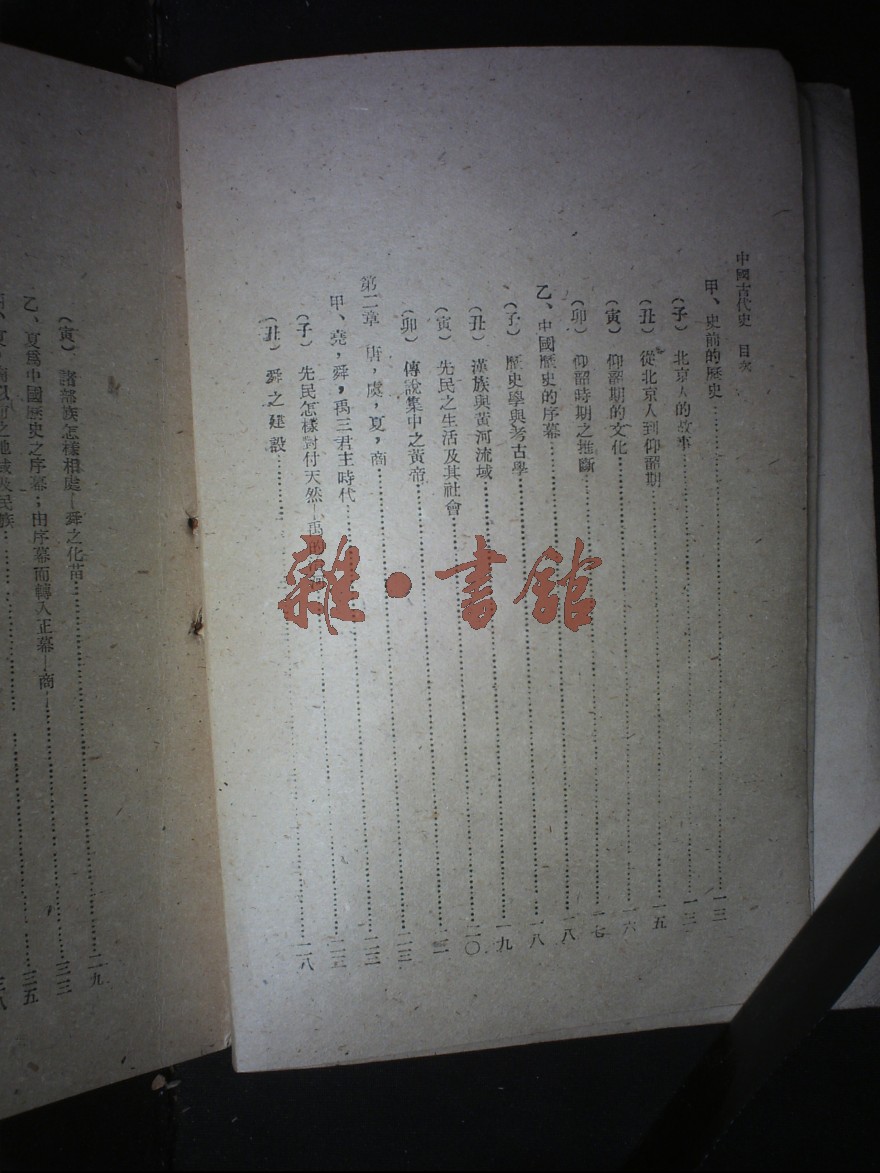 中國古代史 目次
甲、史前的歷史……一三
（子）北京人的故事……一三
（丑）從北京人到仰韶期……一五
（寅）仰韶期的文化……一六
（卯）仰韶時期之推斷……一七
乙、中國歷史的序幕……一八
（子）歷史學與考古學……一八
（丑）漢族與黃河流域……一九
（寅）先民之生活及其社會……二〇
（卯）傳說集中之黃帝……二一
第二章 唐，虞，夏，商……二三
甲、堯，舜，禹三君主時代……二三
（子）先民怎樣對付天然—禹的……
（丑）舜之建設……二八
（寅）諸部族怎樣相處—舜之化苗……二九
乙、夏爲中國歷史之序幕；由序幕而轉入正幕—商……三三
雜·書館